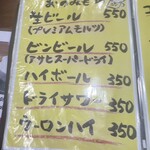 生ビール 550
(プレミアムモルツ)
ビンビール 550
(アサヒスーパードライ)
ハイボール 350
ドライサワー 350
ウーロンハイ 350